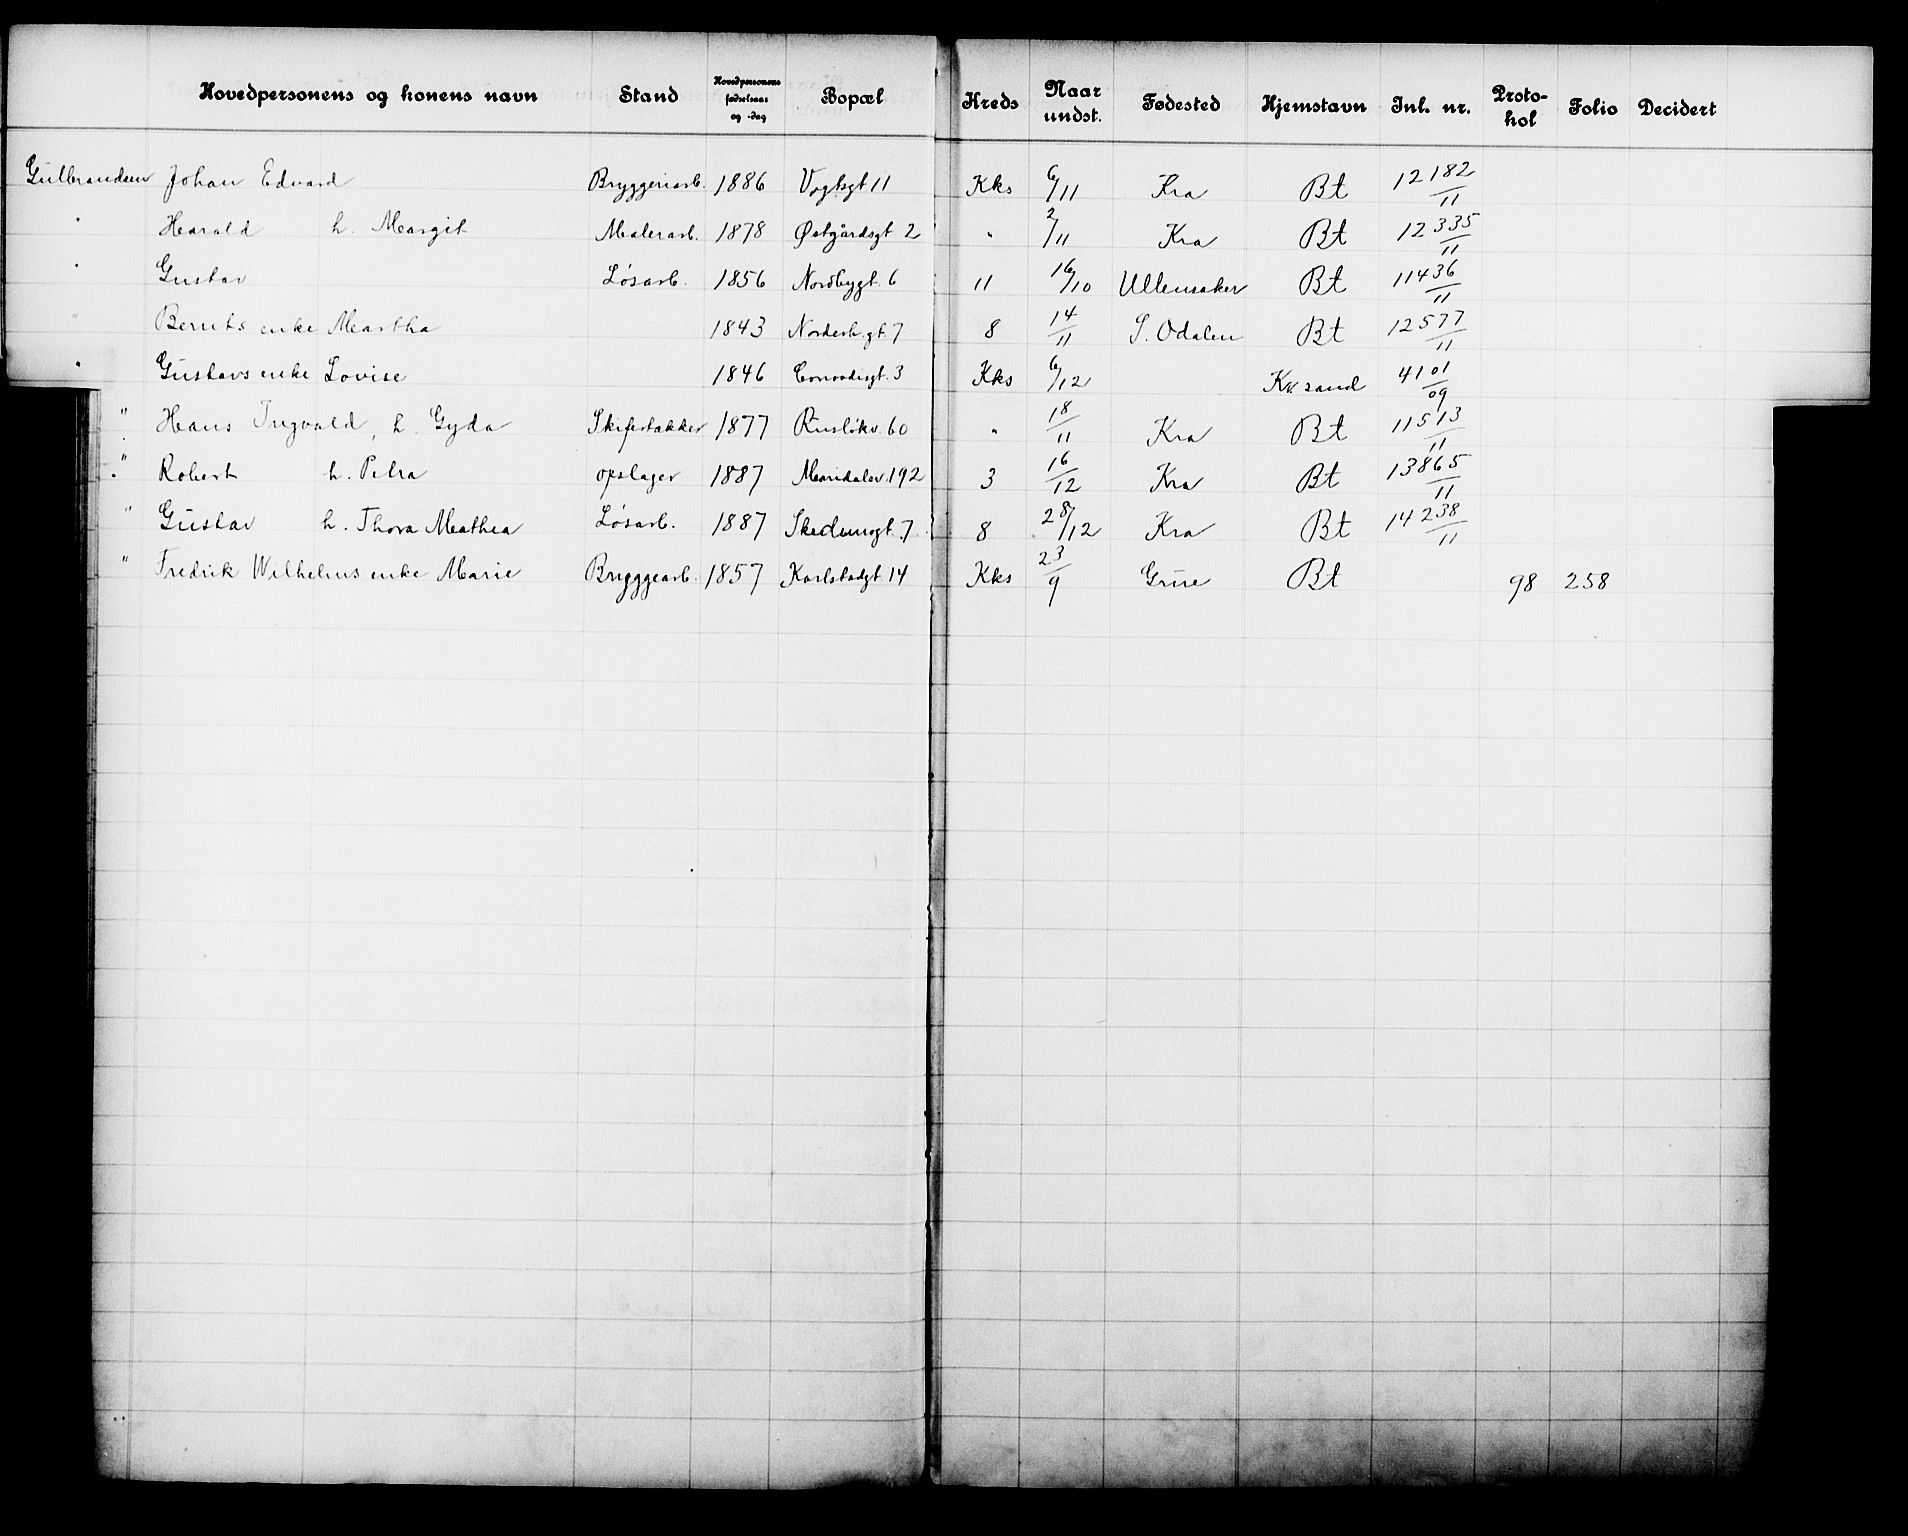 Hovedpersonens og konens navn Stand Hovedpersonens fødselsaar og -dag Bopæl Kreds Naar undst. Fødested Hjemstavn Inl. nr. Protokol Folio Decidert
Gulbrandsen Johan Edvard Bryggeriarb. 1886 Vogtsgt 11 Kks 6/11 Kra Bt 12182/11
" Harald h. Margit Malerarb. 1878 Østgårdsgt 2 " 2/11 Kra Bt 12335/11
" Gustav Løsarb. 1856 Nordbygt. 6 11 16/10 Ullensaker Bt 11436/11
" Bernts enke Martha 1843 Norderh.gt. 7 8 14/11 S. Odalen Bt 12577/11
" Gustavs enke Lovise 1846 Conradisgt. 3 Kks 6/12 Kr. sand 4101/09
" Hans Ingvald, h. Gyda Skifertækker 1877 Rusløkv. 60 " 18/11 Kra Bt 11513/11
" Robert h. Petra opslager 1887 Maridalsv. 192 3 16/12 Kra Bt 13865/11
" Gustav h. Thora Mathea Løsarb. 1887 Skedsmogt. 7 8 28/12 Kra Bt 14238/11
" Fredrik Wilhelms enke Marie Bryggearb. 1857 Karlstadgt 14 Kks 23/9 Grue Bt 98 258